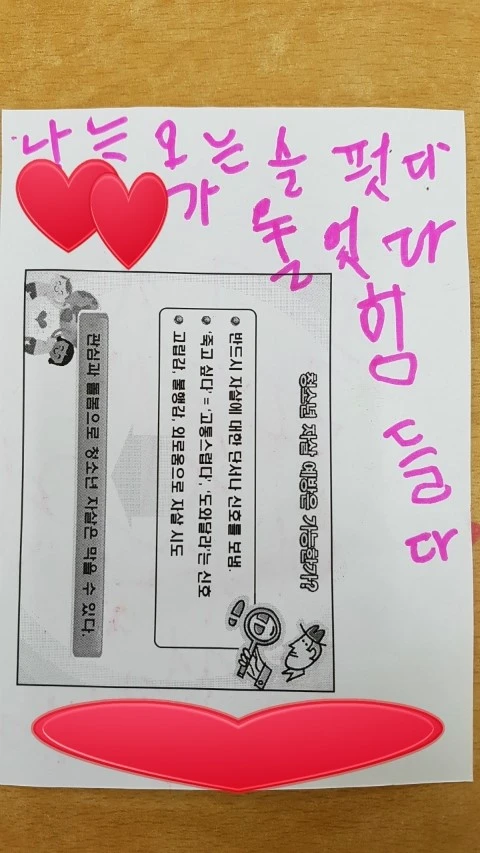 나는 오는 슬 펏다
가 엇 다
힘
듬
다
청소년 자살 예방은 가능한가?
• 반드시 자살에 대한 단서나 신호를 보냄.
• '죽고 싶다' = '고통스럽다', '도와달라'는 신호
• 고립감, 불행감, 외로움으로 자살 시도
관심과 돌봄으로 청소년 자살은 막을 수 있다.